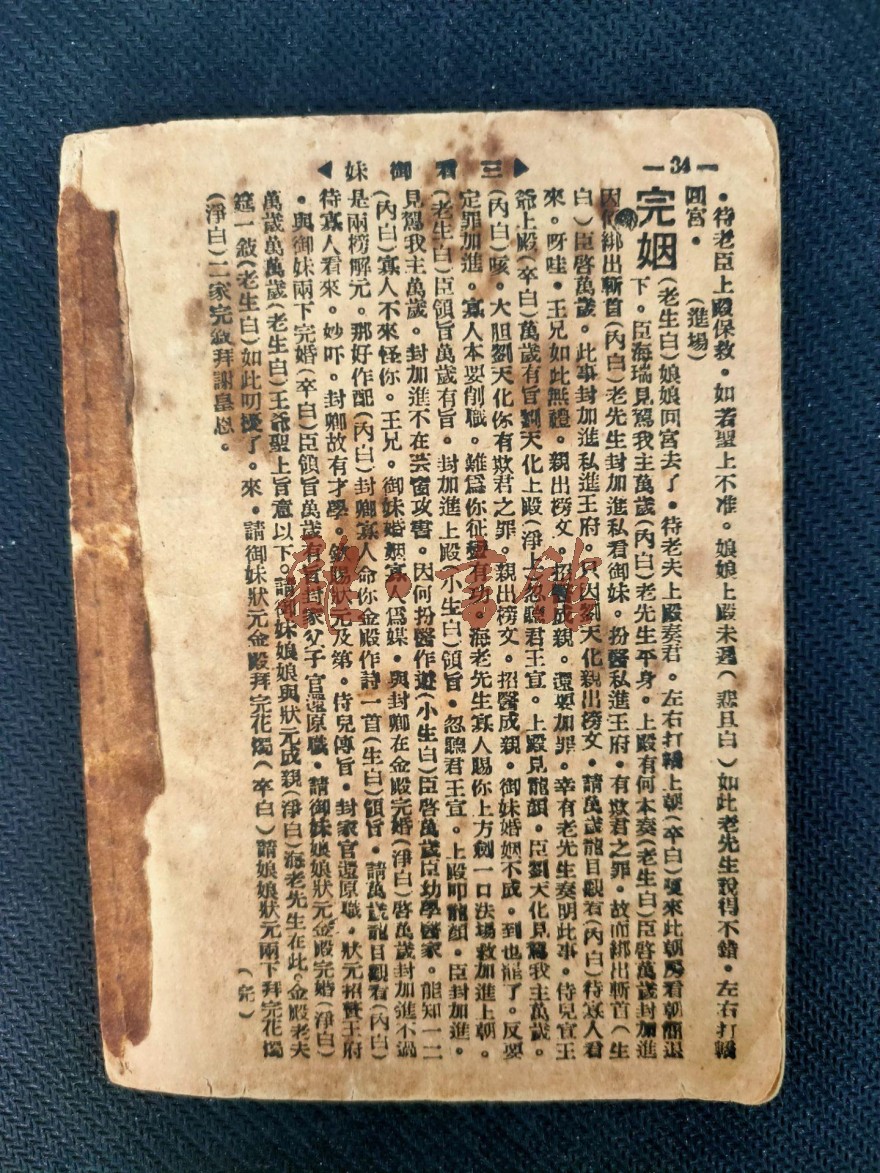 —34—
▶三看御妹◀
。待老臣上殿保救。如若聖上不准。娘娘上殿未遲(悲旦白)如此老先生說得不錯。左右打轎
回宮。 (進場)
完姻
(老生白)娘娘回宮去了。待老夫上殿奏君。左右打轎上朝(卒白)來此朝房看朝簡退
下。臣海瑞見駕我主萬歲(內白)老先生平身。上殿有何本奏(老生白)臣啓萬歲封加進
因何綁出斬首(內白)老先生封加進私看御妹。扮醫私進王府。有欺君之罪。故而綁出斬首(生
白)臣啓萬歲。此事封加進私進王府。只因劉天化親出榜文。請萬歲龍目觀看(內白)待寡人看
來。呀哇。王兄如此無禮。親出榜文。招醫成親。還要加罪。幸有老先生奏明此事。侍兒宣王
爺上殿(卒白)萬歲有旨劉天化上殿(淨上)忽聽君王宣。上殿見龍顏。臣劉天化見駕我主萬歲。
(內白)咳。大胆劉天化你有欺君之罪。親出榜文。招醫成親。御妹婚姻不成。到也罷了。反要
定罪加進。寡人本要削職。雖爲你征蠻有功。海老先生寡人賜你上方劍一口法場救加進上朝。
(老生白)臣領旨萬歲有旨。封加進上殿(小生白)領旨。忽聽君王宣。上殿叩龍顏。臣封加進。
見駕我主萬歲。封加進不在芸窗攻書。因何扮醫作遊(小生白)臣啓萬歲臣幼學醫家。能知一二
(內白)寡人不來怪你。王兄。御妹婚姻寡人爲媒。與封卿在金殿完婚(淨白)啓萬歲封加進不過
是兩榜解元。那好作配(內白)封卿寡人命你金殿作詩一首(生白)領旨。請萬歲龍目觀看(內白)
待寡人看來。妙吓。封卿故有才學。欽賜狀元及第。侍兒傳旨。封家官還原職。狀元招贅王府
。與御妹兩下完婚(卒白)臣領旨萬歲有旨封家父子官還原職。請御妹娘娘狀元金殿完婚(淨白)
萬歲萬萬歲(老生白)王爺聖上旨意以下。請御妹娘娘與狀元成親(淨白)海老先生在此。金殿老夫
筵一敍(老生白)如此叨擾了。來。請御妹狀元金殿拜完花燭(卒白)請娘娘狀元兩下拜完花燭
(淨白)二家完敍拜謝皇恩。 (完)